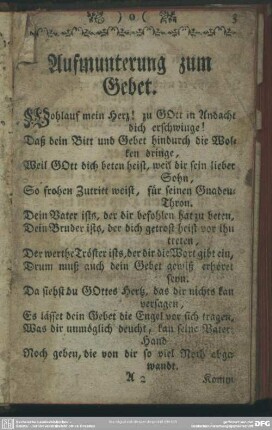 ) o ( 3
Aufmunterung zum
Gebet.
Wohlauf mein Hertz! zu GOtt in Andacht
dich erschwinge!
Daß dein Bitt und Gebet hindurch die Wol-
ken dringe,
Weil GOtt dich beten heist, weil dir sein lieber
Sohn,
So frohen Zutritt weist, für seinen Gnaden-
Thron.
Dein Vater ists, der dir befohlen hat zu beten,
Dein Bruder ists, der dich getrost heist vor ihn
treten,
Der werthe Tröster ists, der dir die Wort gibt ein,
Drum muß auch dein Gebet gewiß erhöret
seyn.
Da siehst du GOttes Hertz, das dir nichts kan
versagen,
Es lässet dein Gebet die Engel vor sich tragen,
Was dir unmöglich deucht, kan seine Vater-
Hand
Noch geben, die von dir so viel Noth abge-
wandt.
A 2 Komm